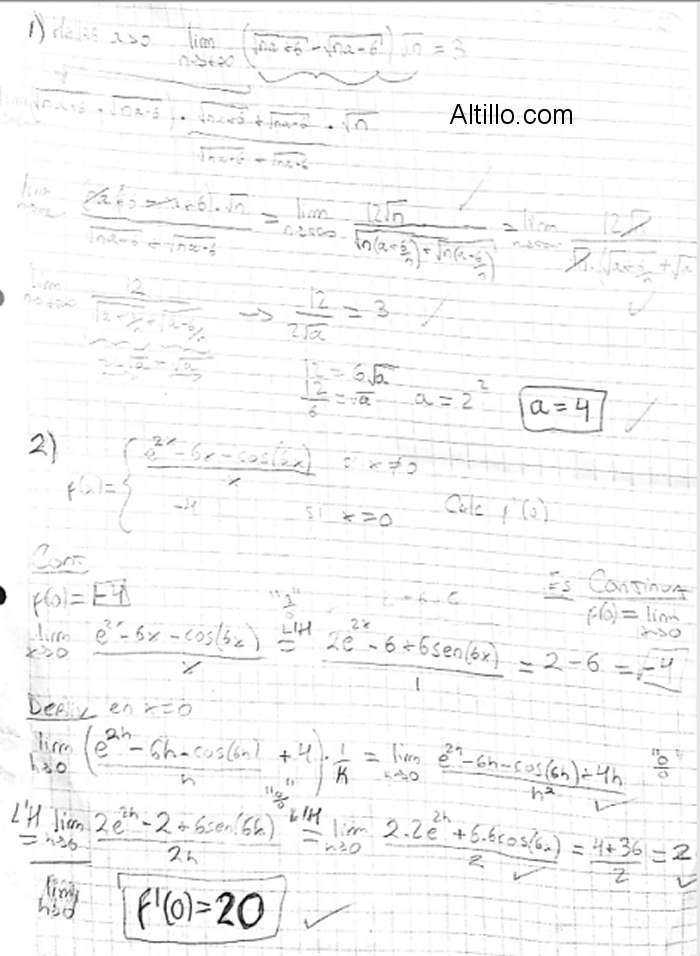 1) a>0 lim n→+∞ (√(na+6) - √(na-6)) √n = 3
Altillo.com
lim √(na+6) - √(na-6) · (√(na+6) + √(na-6)) / (√(na+6) + √(na-6)) · √n
lim n→∞ · √n / (√(na+6) + √(na-6)) = lim n→+∞ 12√n / (√(n(a+6/n)) + √(n(a-6/n))) = lim n→+∞ 12√n / (√n · (√(a+6/n) + √
lim n→+∞ 12 / (√(a+6/n) + √(a-6/n)) → 12 / (2√a) = 3
→√a →√a
12 = 6√a
12/6 = √a a = 2² a = 4
2)
f(x) = { (e^2x - 6x - cos(6x)) / x si x ≠ 0
-4 si x = 0 Calc f'(0)
Cont.
f(0) = -4 "0/0" Es Continua
f(0) = lim x→0
lim x→0 (e^2x - 6x - cos(6x)) / x L'H = (2e^2x - 6 + 6sen(6x)) / 1 = 2 - 6 = -4
Deriv en x=0
lim h→0 ((e^2h - 6h - cos(6h)) / h + 4) · 1/h = lim h→0 (e^2h - 6h - cos(6h) + 4h) / h² "0/0"
"0/0"
L'H = lim h→0 (2e^2h - 2 + 6sen(6h)) / 2h L'H = lim h→0 (2.2e^2h + 6.6cos(6h)) / 2 = (4+36) / 2 = 2
lim h→0 f'(0) = 20